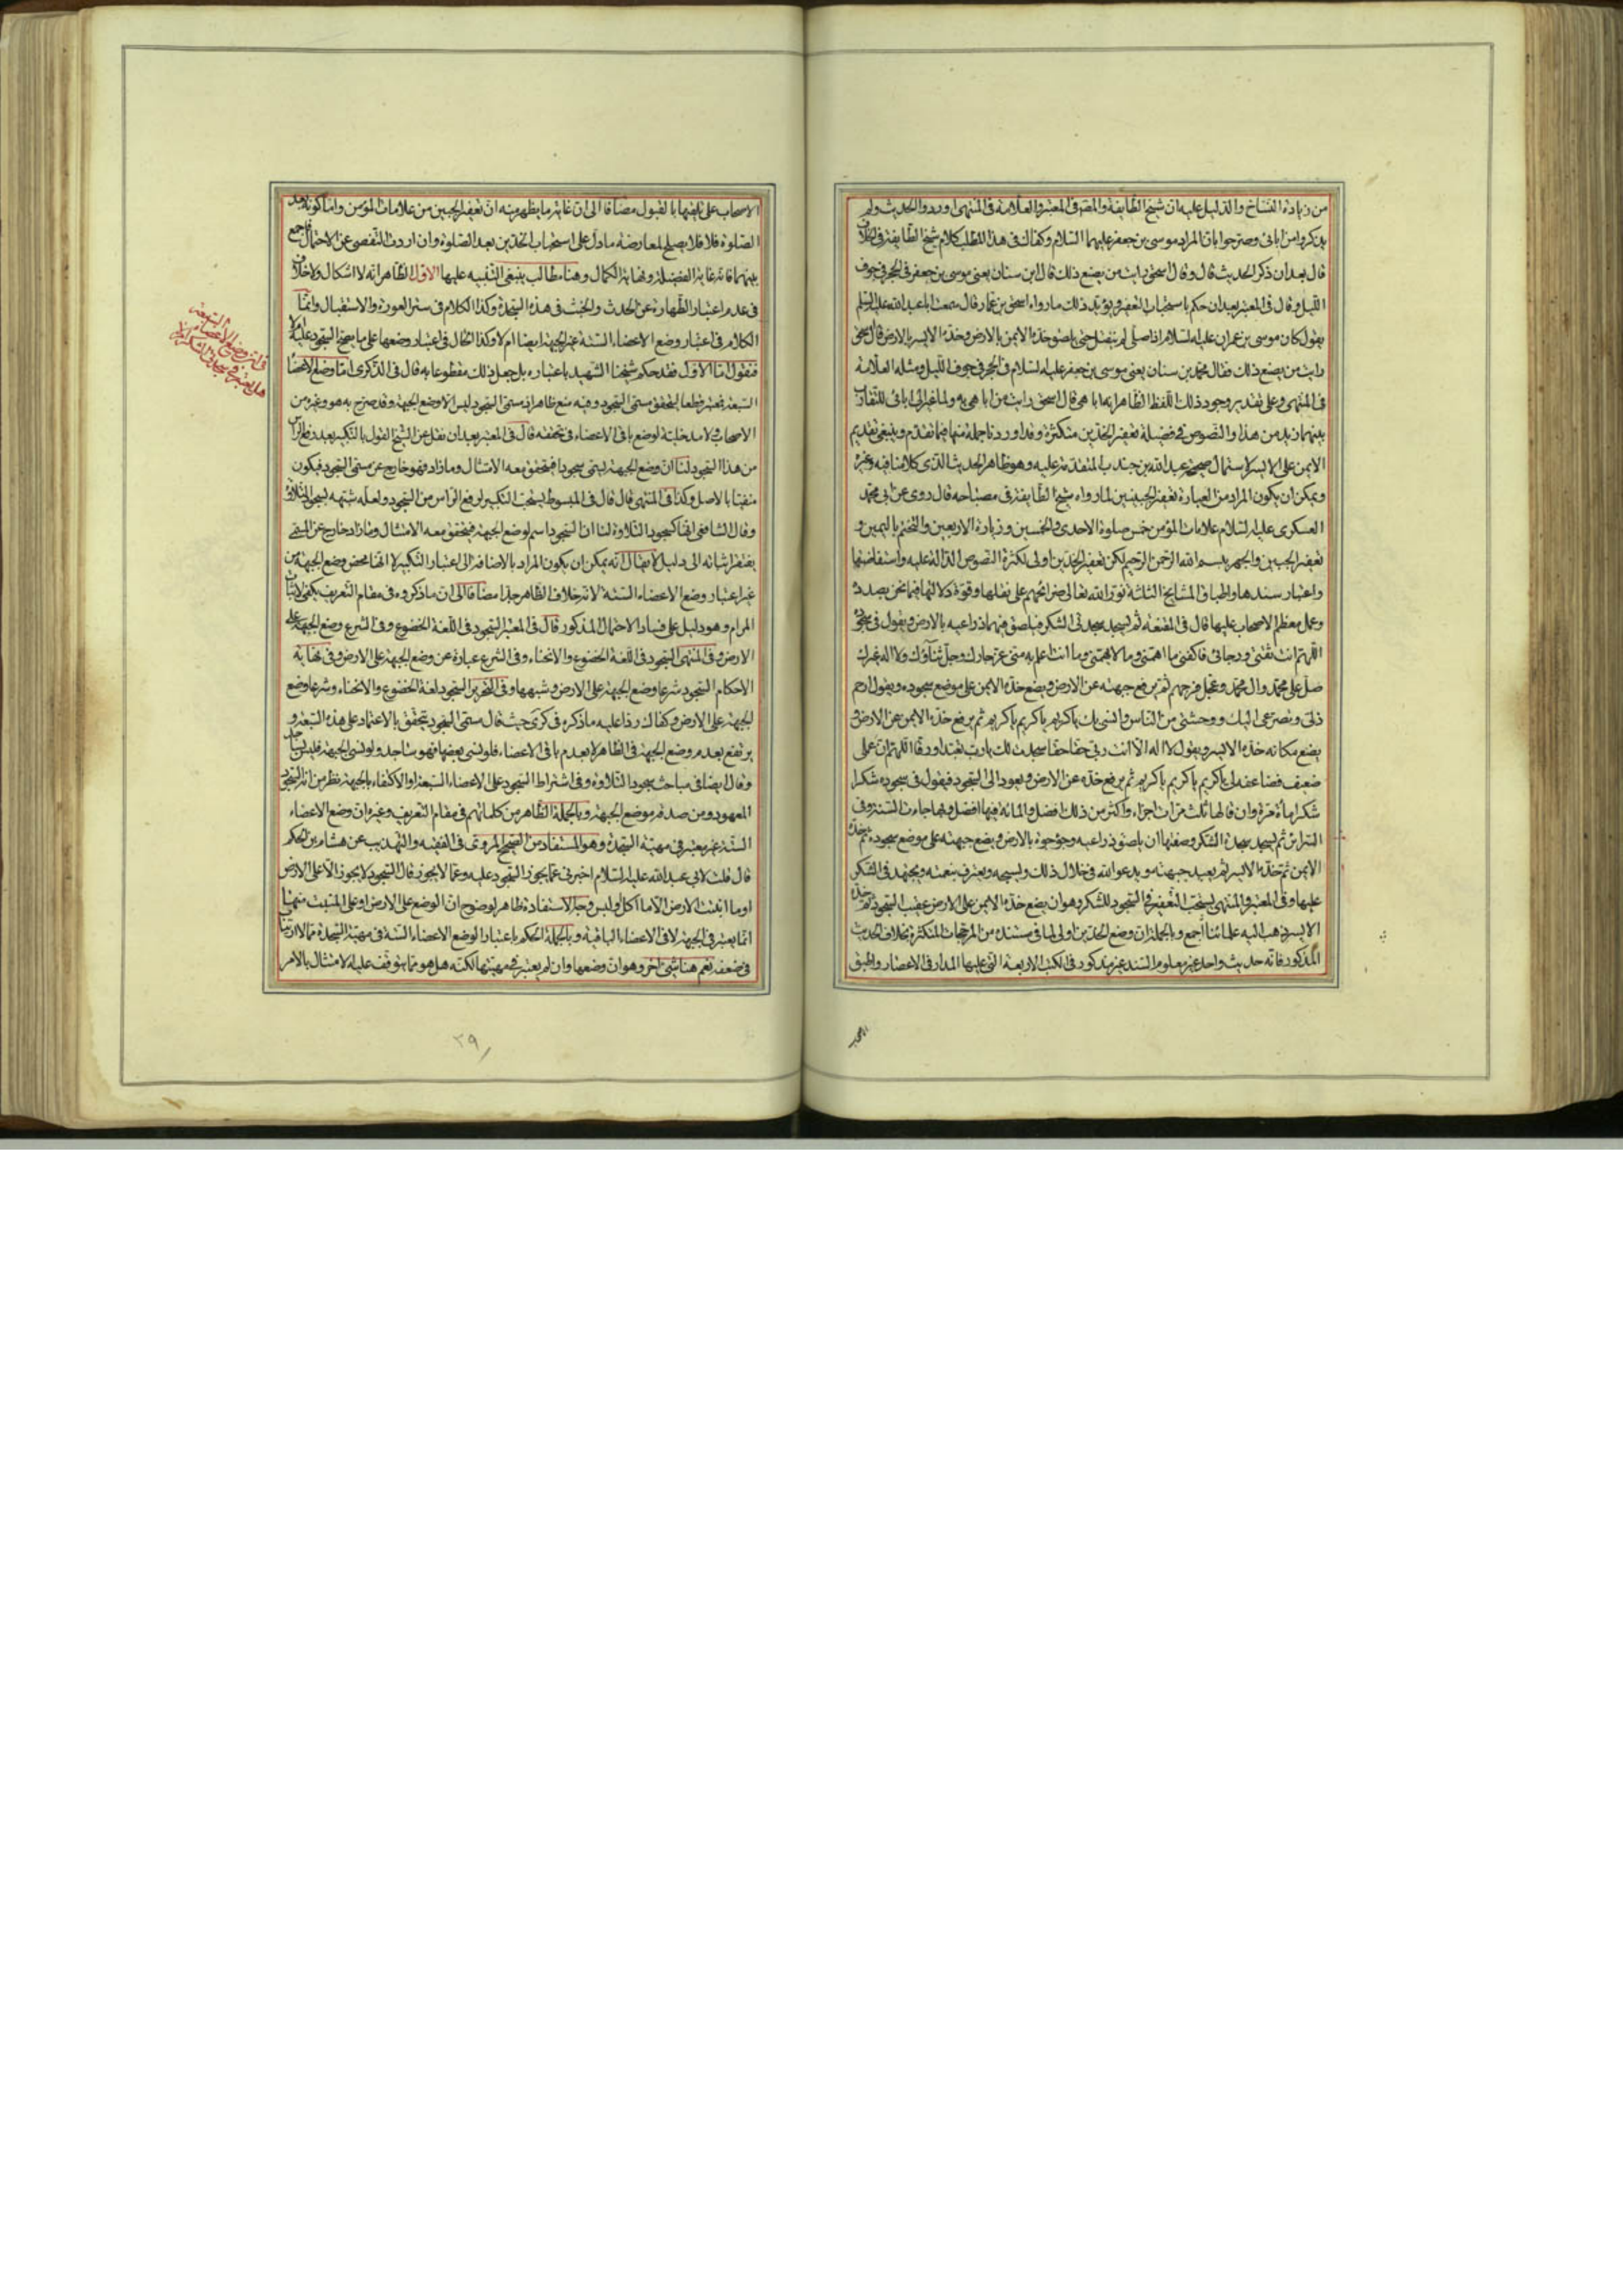 من زيادة النساخ والدليل عليه ان شيخ الطايفة والمص فى المعتبر والعلامة فى المنتهى اوردوا الحديث ولم
يذكروا من ابائى وصرحوا بان المراد موسى بن جعفر عليهما السلام وكفاك فى هذا المطلب كلام شيخ الطايفة فى
قال بعد ان ذكر الحديث قال وقال اسحق رايت من يصنع ذلك قال ابن سنان يعنى موسى بن جعفر فى الحجر فى جوف
الليل وقال فى المعتبر بعد ان حكم باستحباب التعفير ويؤيد ذلك مارواه اسحق بن عمار قال سمعت اباعبدالله عليه السلم
يقول كان موسى بن عمران عليه السلام اذا صلى لم ينفتل حتى يلصق خده الايمن بالارض وخده الايسر بالارض قال اسحق
رايت من يصنع ذلك فقال محمد بن سنان يعنى موسى بن جعفر عليه السلام فى الحجر فى جوف الليل ومثله العلامة
فى المنتهى وعلى تقدير وجود ذلك اللفظ الظاهر ابهاما هى قال اسحق رايت من اباهى به ولما غير الى ابائى للتقارب
بينهما زيد من هذا والنصوص فى فضيلة تعفير الخدين متكثرة وقد اوردنا جملة منها فيما تقدم وينبغى تقديم
الايمن على الايسر لاشتمال صحيحة عبدالله بن جندب المتقدمة عليه وهو ظاهر الحديث الذى كلامنا فيه وغيره
ويمكن ان يكون المراد من العبارة تعفير الجبينين لما رواه شيخ الطايفة فى مصباحه قال روى عن ابى محمد
العسكرى عليه السلام علامات المؤمن خمس صلوة الاحدى والخمسين وزيارة الاربعين والتختم باليمين و
تعفير الجبين والجهر ببسم الله الرحمن الرحيم لكن تعفير الخدين اولى لكثرة النصوص الدالة عليه واستفاضتها
واعتبار سندها واطباق المشايخ الثلثة نور الله تعالى ضرائحهم على نقلها وقوة دلالتها فيما نحن بصدده
وعمل معظم الاصحاب عليها قال فى المقنعة ثم ليسجد سجدتى الشكر فيلصق فيهما ذراعيه بالارض ويقول فى سجوده
اللهم انت ثقتى ورجائى فاكفنى ما اهمنى وما لا يهمنى وما انت اعلم به منى عز جارك وجل ثناؤك ولا اله غيرك
صل على محمد وال محمد وعجل فرجهم ثم يرفع جبهته عن الارض ويضع خده الايمن على موضع سجوده ويقول ارحم
ذلى وتضرعى اليك ووحشتى من الناس وانسى بك ياكريم ياكريم ياكريم ثم يرفع خده الايمن عن الارض و
يضع مكانه خده الايسر ويقول لا اله الا انت ربى حقا حقا سجدت لك يارب تعبدا ورقا اللهم ان عملى
ضعيف فضاعفه لى ياكريم ياكريم ياكريم ثم يرفع خده عن الارض ويعود الى السجود فيقول فى سجوده شكرا
شكرا مأة مرة وان قالها ثلث مرات اجزأه واكثر من ذلك افضل والمائة فيها افضل وبها جاءت السنة وفى
السرائر ثم ليسجد سجدة الشكر وصفتها ان يلصق ذراعيه وجؤجؤه بالارض ويضع جبهته على موضع سجوده ثم خده
الايمن ثم خده الايسر ثم يعيد جبهته ويدعو الله فى خلال ذلك ويسبحه ويعترف بنعمه ويجتهد فى الشكر
عليها وفى المعتبر والمنتهى يستحب التعفير فى السجود للشكر وهو ان يضع خده الايمن على الارض عقيب السجود ثم خده
الايسر ذهب اليه علمائنا اجمع وبالجملة ان وضع الخدين اولى لما فى مستنده من المرجحات المتكثرة بخلاف الحديث
المذكور فانه حديث واحد غير معلوم السند غير مذكور فى الكتب الاربعة التى عليها المدار فى الاعصار واطبق
الاصحاب على تلقيها بالقبول مضافا الى ان غاية ما يظهر منه ان تعفير الجبين من علامات المؤمن واما كونه بعد
الصلوة فلا فلا يصلح لمعارضة مادل على استحباب الخدين بعد الصلوة وان اردت التفصى عن الاحتمال فاجمع
بينهما فانه غاية الفضيلة ونهاية الكمال وهنا مطالب ينبغى التنبيه عليها الاول الظاهر انه لا اشكال ولا خلاف
فى عدم اعتبار الطهارة عن الحدث والخبث فى هذه السجدة وكذا الكلام فى ستر العورة والاستقبال وانما
الكلام فى اعتبار وضع الاعضاء الستة غير الجبهة ايضا ام لا وكذا الحال فى اعتبار وضعها على ما يصح السجود عليه
فنقول اما الاول فقد حكم شيخنا الشهيد باعتباره بل جعل ذلك مقطوعا به قال فى الذكرى اما وضع الاعضا
السبعة فمعتبر قطعا ليتحقق مسمى السجود وفيه منع ظاهر اذ مسمى السجود ليس الا وضع الجبهة وقد صرح به هو وغيره من
الاصحاب ولا مدخلية لوضع باقى الاعضاء فى تحققه قال فى المعتبر بعد ان نقل عن الشيخ القول بالتكبير بعد رفع الراس
من هذا السجود لنا ان وضع الجبهة يسمى سجودا فيتحقق معه الامتثال وما زاد فهو خارج عن مسمى السجود فيكون
منفيا بالاصل وكذا فى المنتهى قال قال فى المبسوط يستحب التكبير لرفع الراس من السجود ولعله شبهه بسجود التلاوة
وقال الشافعى انها كسجود التلاوة لنا ان السجود اسم لوضع الجبهة فيتحقق معه الامتثال وما زاد خارج عن المسمى
يفتقر اثباته الى دليل لا يقال انه يمكن ان يكون المراد بالاضافة الى اعتبار التكبير لا انها محض وضع الجبهة من
غير اعتبار وضع الاعضاء الستة لانه خلاف الظاهر جدا مضافا الى ان ما ذكروه فى مقام التعريف يكفى لاثبات
المرام وهو دليل على فساد الاحتمال المذكور قال فى المعتبر السجود فى اللغة الخضوع وفى الشرع وضع الجبهة على
الارض وفى المنتهى السجود فى اللغة الخضوع والانحناء وفى الشرع عبارة عن وضع الجبهة على الارض وفى نهاية
الاحكام السجود شرعا وضع الجبهة على الارض وشبهها وفى التحرير السجود لغة الخضوع والانحناء وشرعا وضع
الجبهة على الارض وكفاك ردا عليه ما ذكره فى كرى حيث قال مسمى السجود يتحقق بالاعتماد على هذه السبعة و
يرتفع بعدم وضع الجبهة فى الظاهر لا بعدم باقى الاعضاء فلو نسى بعضها فهو ساجد ولو نسى الجبهة فليس بساجد
وقال ايضا فى مباحث سجود التلاوة وفى اشتراط السجود على الاعضاء السبعة او الاكتفاء بالجبهة نظر من انه السجود
المعهود ومن صدقه بوضع الجبهة وبالجملة الظاهر من كلماتهم فى مقام التعريف وغيره ان وضع الاعضاء
الستة غير معتبر فى مهية السجدة وهو المستفاد من الصحيح المروى فى الفقيه والتهذيب عن هشام بن الحكم
قال قلت لابى عبدالله عليه السلام اخبرنى عما يجوز السجود عليه وعما لا يجوز قال السجود لا يجوز الا على الارض
او ما انبتت الارض الا ما اكل او لبس وجه الاستفادة ظاهر لوضوح ان الوضع على الارض او على المنبت منها
انما يعتبر فى الجبهة لا فى الاعضاء الباقية وبالجملة الحكم باعتبار الوضع الاعضاء الستة فى مهية السجدة مما لا ارتياب
فى ضعفه نعم هنا شئ اخر وهو ان وضعها وان لم يعتبر فى مهيتها لكنه هل هو مما يتوقف عليه الامتثال بالامر
فى ان وضع الاعضاء السبعة
هل يعتبر فى سجدة الشكر ام لا
٣٩